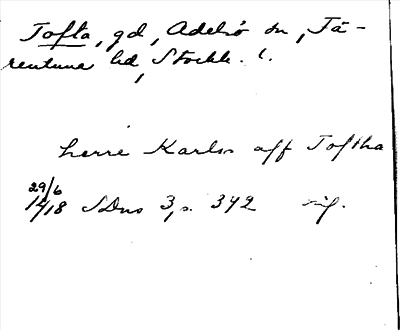 Tofta, gd, Adelsö sn, Fä-
rentuna hd, Stockh. l.
herre Karlss aff Toftha
29/6
1418 SDns 3, s. 342 sig.